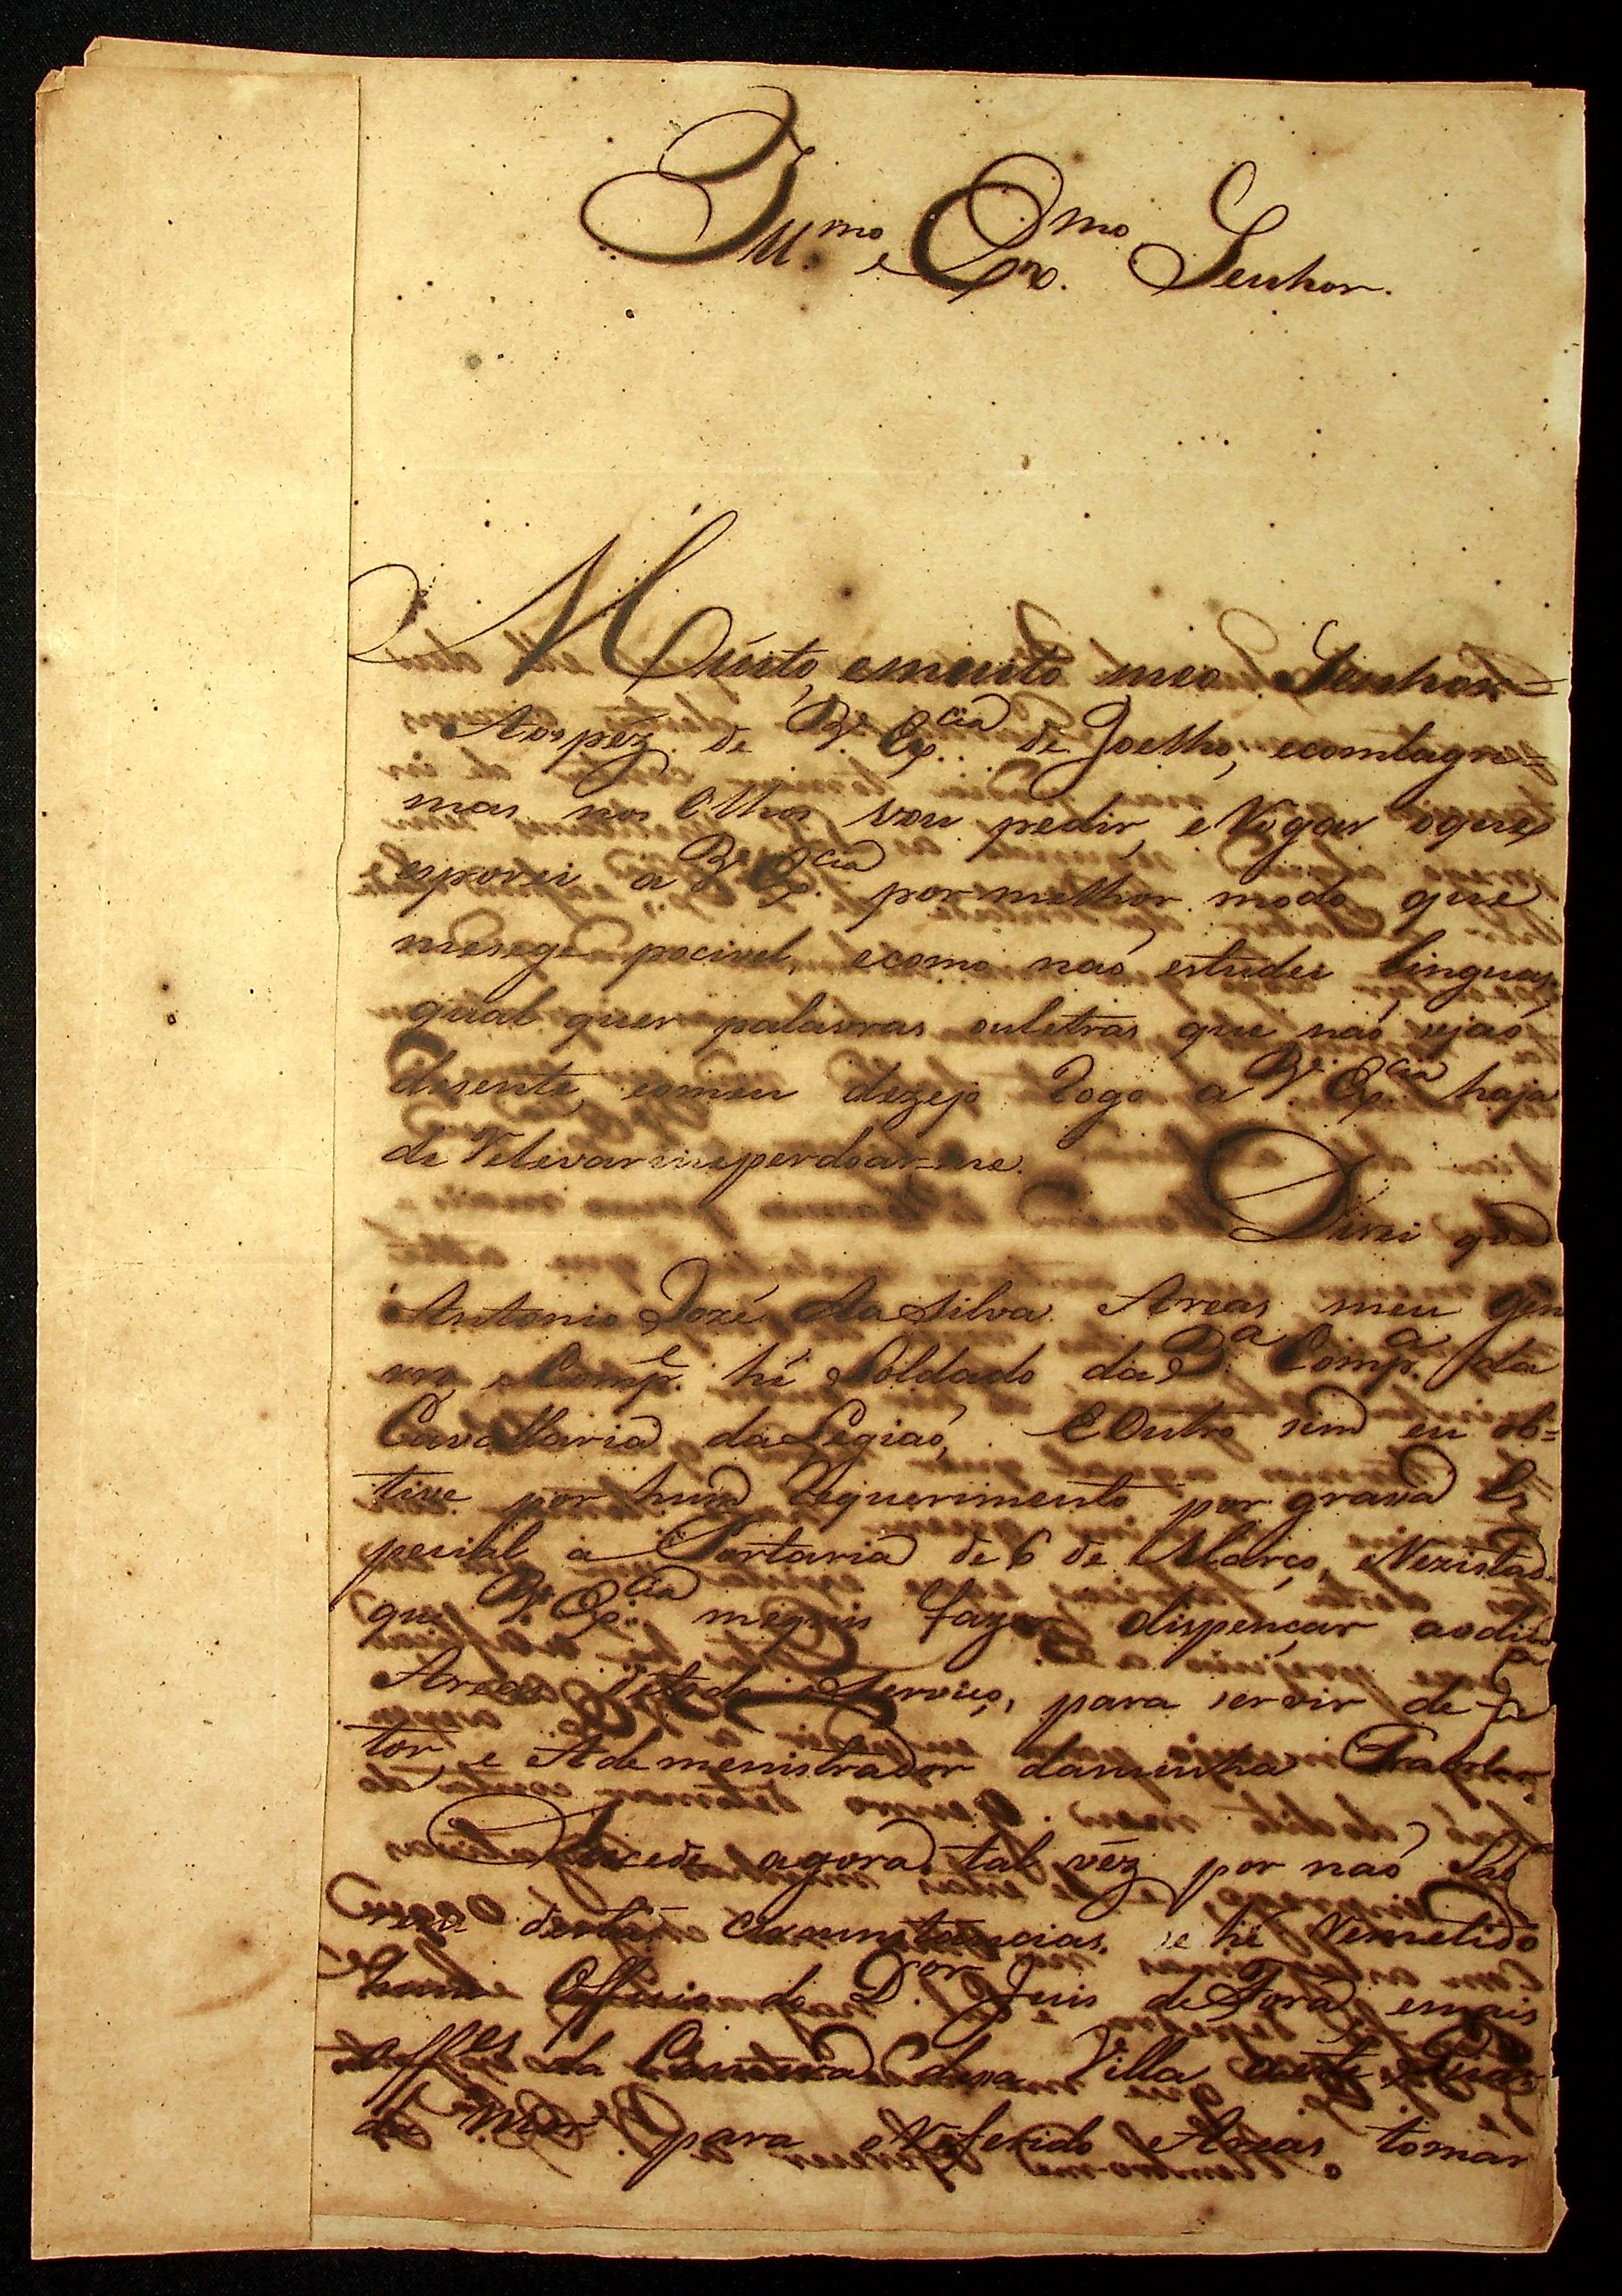 Ill.mo e Ex.mo Senhor.
Muito, emuito meo Senhor
Aospéz de V. Ex.cia de Joelho, ecomlagri=
mas nos Olhos vou pedir, eRogar oque
esporei a V. Ex.cia por melhor modo que
mesege pocivel, ecomo naó estudei linguas,
qual quer palavras ouletras, que naó sejaó
desente, eomeu dezejo Rogo a V. Ex.cia haja
de Relevarmeperdoar=me.
Direi que
Antonio Jozé daSilva Areas meu gen
ro e Comp.e hé Soldado da Comp.a da
Cavallaria daLegiaó, EOutro sim eu ob=
tive por hum Requerimento por graça Es
pecial a Portaria de 6 de Março,
que V. Ex.cia mequis fazer dispençar aodito
Areas detodo oServiço, para servir de Fei
tor, e Ademenistrador daminha
Sucede agora tal véz por naó Sab
rem destas Circunstancias, se hé Remetido
hum Officio do D.or Juis deFora emais
Off.es da Camera desa Villa aeste
de Mor para oReferido Areas tomar